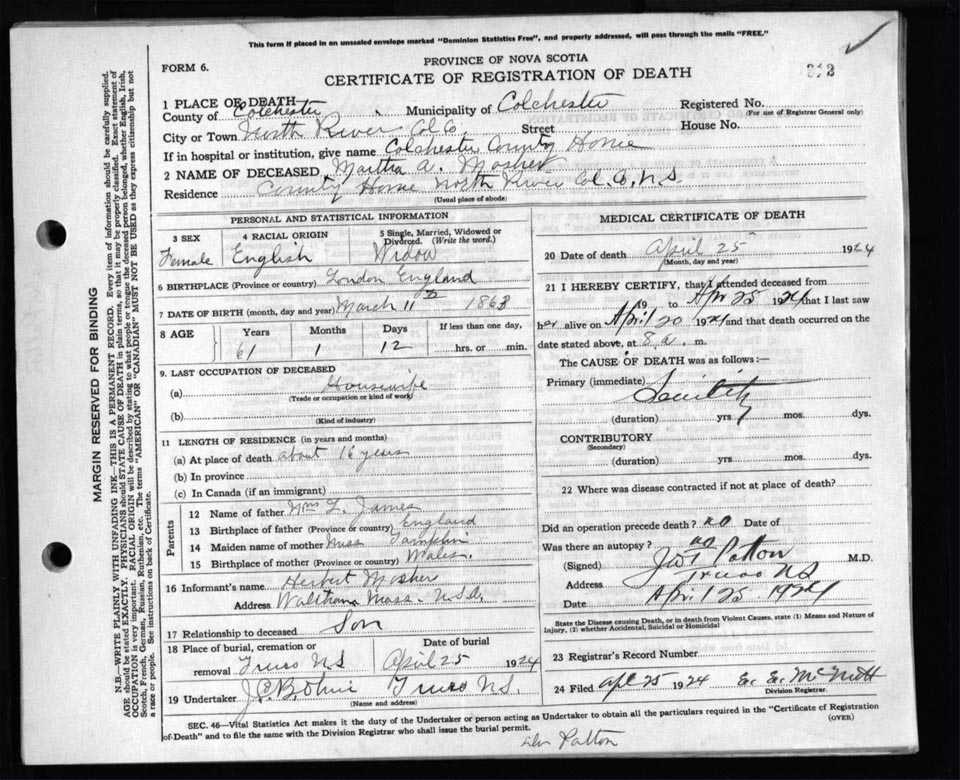 This form if placed in an unsealed envelope marked "Dominion Statistics Free", and properly addressed, will pass through the mails "FREE."
FORM 6.
PROVINCE OF NOVA SCOTIA
CERTIFICATE OF REGISTRATION OF DEATH
312
1 PLACE OF DEATH
County of Colchester Municipality of Colchester Registered No.
(For use of Registrar General only)
City or Town North River Col Co. Street House No.
If in hospital or institution, give name Colchester County Home
2 NAME OF DECEASED Martha A. Mosher
Residence County Home North River Col. Co, N.S
(Usual place of abode)
PERSONAL AND STATISTICAL INFORMATION
3 SEX 4 RACIAL ORIGIN 5 Single, Married, Widowed or Divorced. (Write the word.)
Female English Widow
6 BIRTHPLACE (Province or country) London England
7 DATE OF BIRTH (month, day and year) March 11th 1863
8 AGE Years Months Days If less than one day,
61 1 12 hrs. or min.
9. LAST OCCUPATION OF DECEASED
(a) Housewife
(Trade or occupation or kind of work)
(b)
(Kind of industry)
11 LENGTH OF RESIDENCE (in years and months)
(a) At place of death about 16 years
(b) In province
(c) In Canada (if an immigrant)
Parents
12 Name of father Wm L. James
13 Birthplace of father (Province or country) England
14 Maiden name of mother Miss Tamplin
15 Birthplace of mother (Province or country) Wales.
16 Informant's name Herbert Mosher
Address Waltham Mass. U.S.A.
17 Relationship to deceased Son
18 Place of burial, cremation or removal Truro N.S Date of burial April 25 1924
19 Undertaker Truro N.S.
(Name and address)
MEDICAL CERTIFICATE OF DEATH
20 Date of death April 25 1924
(Month, day and year)
21 I HEREBY CERTIFY, that I attended deceased from
19 to Apr 25 1924 that I last saw
her alive on April 20 1924 and that death occurred on the
date stated above, at 8 a. m.
The CAUSE OF DEATH was as follows:—
Primary (immediate) Senility
(duration) yrs. mos. dys.
CONTRIBUTORY
(Secondary)
(duration) yrs. mos. dys.
22 Where was disease contracted if not at place of death?
Did an operation precede death? no Date of
Was there an autopsy? no
(Signed) Patton M.D.
Address Truro N.S
Date April 25 1924
State the Disease causing Death, or in death from Violent Causes, state (1) Means and Nature of Injury, (2) whether Accidental, Suicidal or Homicidal
23 Registrar's Record Number
24 Filed Apl 25 1924 E. E. McNutt
Division Registrar.
SEC. 46—Vital Statistics Act makes it the duty of the Undertaker or person acting as Undertaker to obtain all the particulars required in the "Certificate of Registration
of Death" and to file the same with the Division Registrar who shall issue the burial permit.
(OVER)
Patton
MARGIN RESERVED FOR BINDING
N.B.—WRITE PLAINLY WITH UNFADING INK—THIS IS A PERMANENT RECORD. Every item of information should be carefully supplied.
AGE should be stated EXACTLY. PHYSICIANS should STATE CAUSE OF DEATH in plain terms, so that it may be properly classified. Exact statement of
OCCUPATION is very important. RACIAL ORIGIN will be described by stating to what people or tongue the deceased person belonged, whether English, Irish,
Scotch, French, German, Russian, Ruthenian, etc. The terms "AMERICAN" OR "CANADIAN" MUST NOT BE USED as they express citizenship but not
a race or people. See instructions on back of Certificate.